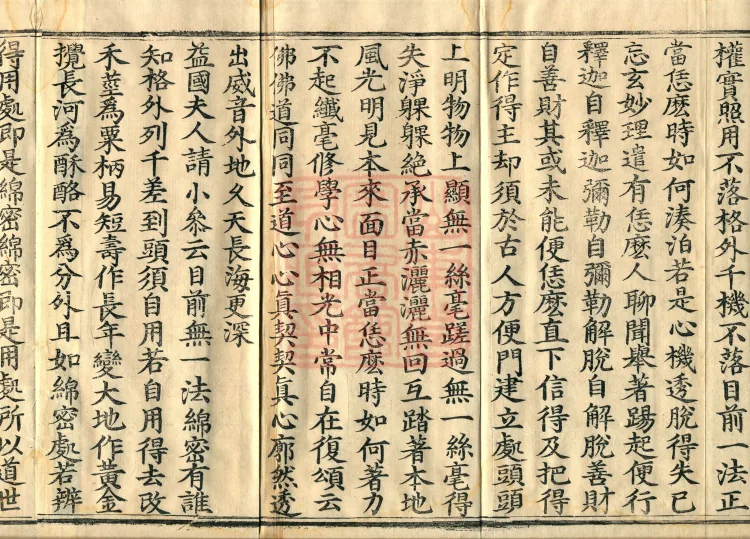 權實照用不落格外千機不落目前一法正
當恁麽時如何湊泊若是心機透脫得失已
忘玄妙理遣有恁麽人聊聞舉著踢起便行
釋迦自釋迦彌勒自彌勒解脫自解脫善財
自善財其或未能便恁麽直下信得及把得
定作得主却須於古人方便門建立處頭頭
上明物物上顯無一絲毫蹉過無一絲毫得
失淨躶躶絶承當赤灑灑無回互踏著本地
風光明見本來面目正當恁麽時如何著力
不起纖毫修學心無相光中常自在復頌云
佛佛道同同至道心心真契契真心廓然透
出威音外地久天長海更深
益國夫人請小參云目前無一法綿密有誰
知格外列千差到頭須自用若自用得去改
禾莖爲粟柄易短壽作長年變大地作黃金
攪長河爲酥酪不爲分外且如綿密處若辨
得用處即是綿密綿密即是用處所以道世